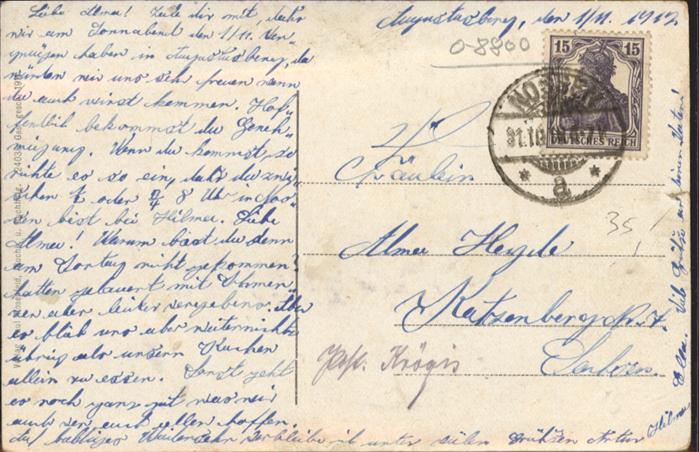 Augustusberg, den 1/11. 1919
Liebe Alma! Teile dir mit, daß
wir am Sonnabend den 1/11. Ver-
gnügen haben in Augustusberg, da
würden wir uns sehr freuen wenn
du auch wirst kommen. Hof-
fentlich bekommst du Geneh-
migung. Wenn du kommst, so
richte es so ein, daß du zwi-
schen 7 oder 8 Uhr in
bist bei Hilmer. Liebe
Alma! Warum bist du denn
am Sontag nicht gekommen?
hatten gelauert mit
aber leider vergebens. Aber
es blieb uns aber weiter nichts
übrig als unsern Kuchen
allein zu essen. Sonst geht
es noch ganz gut was wir
auch von euch allen hoffen.
Auf baldiges Wiedersehn verbleibe ich unter vielen Grüßen Artur
Hilmer
Viele Grüße an deinen
0-8800
15 15
DEUTSCHES REICH
NOSSEN
31.10
a
Fräulein
Alma Heyde
Katzenberg
Sachsen.
Post. Krögis
35,